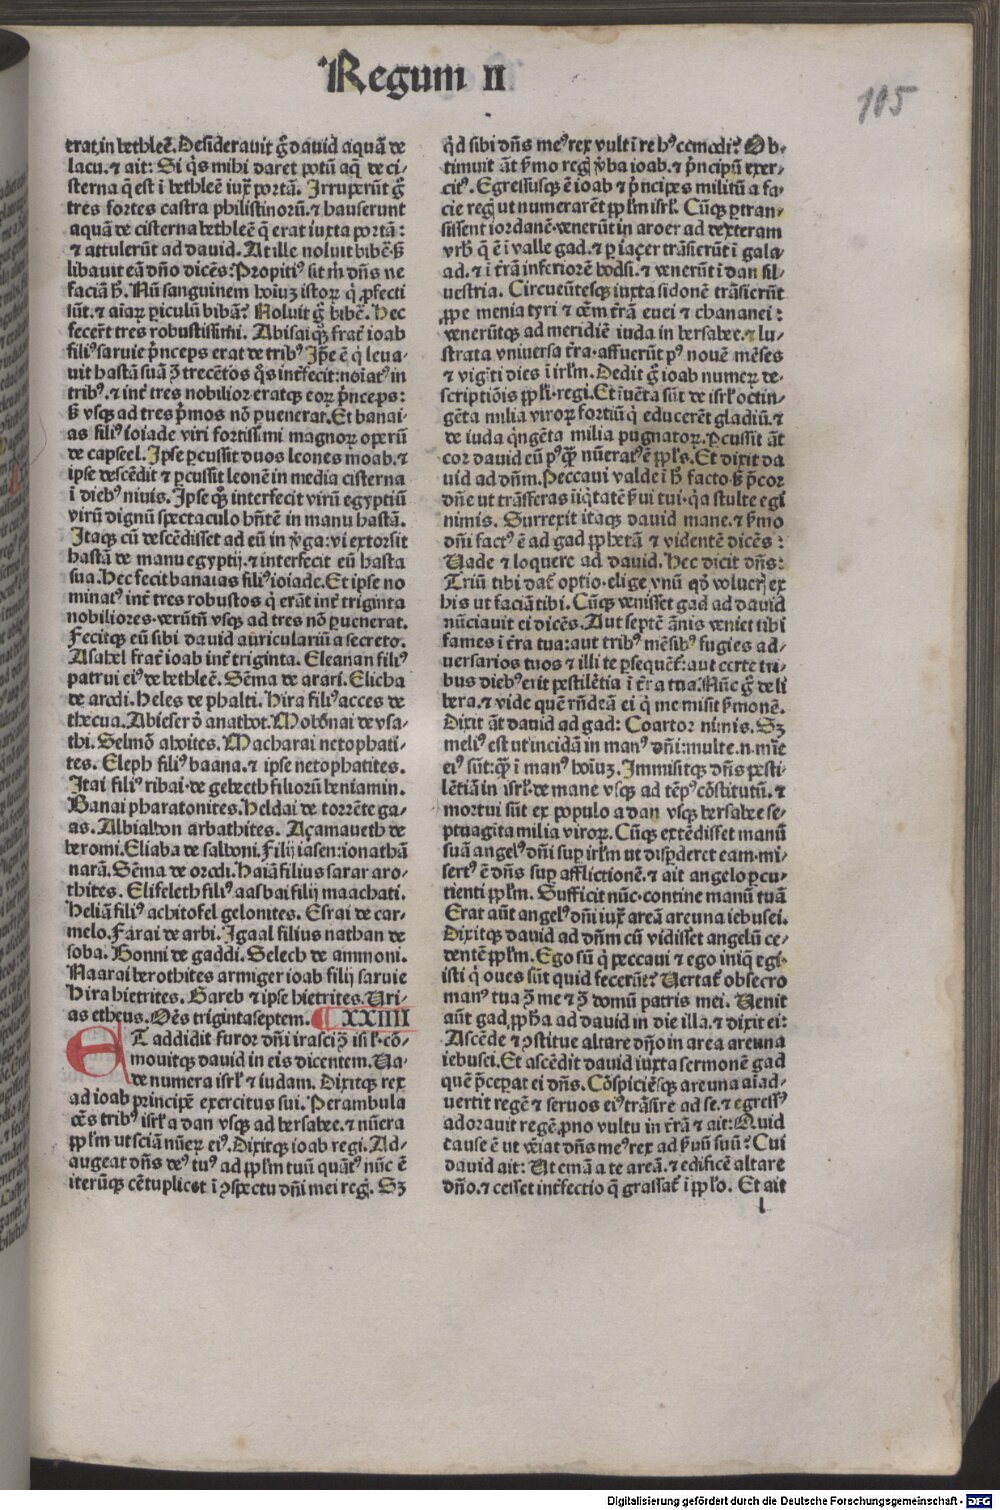 Regum II
105
erat in bethleē. Desiderauit g̃ dauid aquā de
lacu. ⁊ ait: Si q̃s mihi daret potū aq̃ de ci-
sterna q̃ est ī bethleē iuxͣ portā. Irruperūt g̃
tres fortes castra philistinorū. ⁊ hauserunt
aquā de cisterna bethleē q̃ erat iuxta portā:
⁊ attulerūt ad dauid. At ille noluit bibē. sꝫ
libauit eā dño dicēs: Propitiꝰ sit m̃ dñs ne
faciā h̃. Nū sanguinem hoīuꝫ istoꝝ q̃ ꝓfecti
sūt. ⁊ aīaꝝ ꝑiculū bibā? Noluit g̃ bibē. Hec
fecer̄t tres robustissimi. Abisai qꝫ frat̃ ioab
filiꝰ saruie p̃nceps erat de tribꝰ. Ip̄e ē q̃ leua-
uit hastā suā ꝯ̃ trecētos q̃s int̃fecit: noīatꝰ in
tribꝰ. ⁊ int̃ tres nobilior. eratqꝫ eoꝝ p̃nceps:
sꝫ vsqꝫ ad tres p̃mos nō ꝑuenerat. Et banai-
as filiꝰ ioiade viri fortissimi magnoꝝ operū
de capseel. Ipse ꝑcussit duos leones moab. ⁊
ipse descēdit ⁊ ꝑcussit leonē in media cisterna
ī diebꝰ niuis. Ipse qꝫ interfecit virū egyptiū
virū dignū spectaculo hñtē in manu hastā.
Itaqꝫ cū descēdisset ad eū in ṽga: vi extorsit
hastā de manu egyptij. ⁊ interfecit eū hasta
sua. Hec fecit banaias filiꝰ ioiade. Et ipse no
minatꝰ int̃ tres robustos q̃ erāt int̃ triginta
nobiliores. verūtñ vsqꝫ ad tres nō ꝑuenerat.
Fecitqꝫ eū sibi dauid auriculariū a secreto.
Asahel frat̃ ioab int̃ triginta. Eleanan filiꝰ
patrui eiꝰ de bethleē. Sēma de arari. Elicha
de arodi. Heles de phalti. Hira filiꝰ acces de
thecua. Abieser ð anathot. Mobōnai de vsa-
thi. Selmō ahoites. Macharai netophati-
tes. Eleph filiꝰ baana. ⁊ ipse netophatites.
Itai filiꝰ ribai. de gebeeth filiorū beniamin.
Banai pharatonites. Heldai de torrēte ga-
as. Albialbon arbathites. Açamaueth de
beromi. Eliaba de salboni. Filij iasen: ionathā
narā. Sēma de orodi. Haiā filius sarar aro-
thites. Elifeleth filiꝰ aasbai filij maachati.
Heliā filiꝰ achitofel gelonites. Esrai de car-
melo. Farai de arbi. Igaal filius nathan de
soba. Bonni de gaddi. Selech de ammoni.
Naarai berothites armiger ioab filij saruie
Hira hietrites. Gareb ⁊ ipse hietrites. Uri-
as etheus. Oēs trigintaseptem. XXIIII
ET addidit furor dñi irasci ꝯ̃ isrl̃. cō-
mouitqꝫ dauid in eis dicentem. Ua-
de numera isrl̃ ⁊ iudam. Dixitqꝫ rex
ad ioab principē exercitus sui. Perambula
oēs tribꝰ isrl̃ a dan vsqꝫ ad bersabee. ⁊ nūera
ppl̃m ut sciā nūeꝝ eiꝰ. Dixitqꝫ ioab regi. Ad-
augeat dñs deꝰ tuꝰ ad ppl̃m tuū quātꝰ nūc ē
iterūqꝫ cētuplicet ī ꝯspectu dñi mei reg̃. Sꝫ
q̃d sibi dñs meꝰ rex vult ī re hꝰcemodi? Ob-
timuit āt ẜmo reg̃ ṽba ioab. ⁊ p̃ncipū exer-
citꝰ. Egressusqꝫ ē ioab ⁊ p̃ncipes militū a fa-
cie reg̃ ut numerarēt ppl̃m isrl̃. Cūqꝫ ꝑtran-
sissent iordanē. venerūt in aroer ad dexteram
vrb̃ q̃ ē ī valle gad. ⁊ ꝑ iaçer trāsierūt ī gala-
ad. ⁊ ī t̃rā inferiorē hodsi. ⁊ venerūt ī dan sil-
uestria. Circueūtesqꝫ iuxta sidonē trāsierūt
ꝓpe menia tyri ⁊ oēm t̃rā euei ⁊ chananei:
venerūtqꝫ ad meridiē iuda in bersabee. ⁊ lu-
strata vniuersa t̃ra. affuerūt pꝰ nouē mēses
⁊ vigīti dies ī irl̃m. Dedit g̃ ioab numeꝝ de-
scriptiōis ppl̃i. regi. Et īuēta sūt de isrl̃ octin-
gēta milia viroꝝ fortiū q̃ educerēt gladiū. ⁊
de iuda q̃ngēta milia pugnatoꝝ. Ꝑcussit āt
cor dauid eū pꝰqꝫ nūeratꝰ ē ppl̃s. Et dixit da
uid ad dñm. Peccaui valde ī h̃ facto. sꝫ p̃cor
dñe ut trāsferas iīq̃tatē ẜui tui. q̃a stulte egi
nimis. Surrexit itaqꝫ dauid mane. ⁊ ẜmo
dñi factꝰ ē ad gad ꝓphetā ⁊ videntē dicēs:
Uade ⁊ loquere ad dauid. Hec dicit dñs:
Triū tibi dat̃ optio. elige vnū qð volueris ex
his ut faciā tibi. Cūqꝫ venisset gad ad dauid
nūciauit ei dicēs. Aut septē ānis veniet tibi
fames ī t̃ra tua: aut tribꝰ mēsibꝰ fugies ad-
uersarios tuos ⁊ illi te ꝑsequēt̃: aut certe tri-
bus diebꝰ erit pestilētia ī t̃ra tua. Nūc g̃ de li
bera. ⁊ vide quē rñdeā ei q̃ me misit ẜmonē.
Dixit āt dauid ad gad: Coartor nimis. Sꝫ
meliꝰ est ut incidā in manꝰ dñi: multe. n. mīe
eiꝰ sūt: qꝫ̃ ī manꝰ hoīuꝫ. Immisitqꝫ dñs pesti-
lētiā in isrl̃. de mane vsqꝫ ad tēpꝰ cōstitutū. ⁊
mortui sūt ex populo a dan vsqꝫ bersabee se-
ptuagīta milia viroꝝ. Cūqꝫ extēdisset manū
suā angelꝰ dñi suꝑ irl̃m ut disꝑderet eam. mi-
sertꝰ ē dñs suꝑ afflictionē. ⁊ ait angelo ꝑcu-
tienti ppl̃m. Sufficit nūc. contine manū tuā
Erat aūt angelꝰ dñi iuxͣ areā areuna iebusei.
Dixitqꝫ dauid ad dñm cū vidisset angelū ce-
dentē ppl̃m. Ego sū q̃ peccaui ⁊ ego iniq̃ egi.
isti q̃ oues sūt quid fecerūt? Uertat̃ obsecro
manꝰ tua ꝯ̃ me ⁊ ꝯ̃ domū patris mei. Uenit
aūt gad ꝓph̃a ad dauid in die illa. ⁊ dixit ei:
Ascēde ⁊ ꝯstitue altare dño in area areuna
iebusei. Et ascēdit dauid iuxta sermonē gad
quē p̃ceꝑat ei dñs. Cōspiciēsqꝫ areuna aīad-
uertit regē ⁊ seruos eiꝰ trāsire ad se. ⁊ egressꝰ
adorauit regē ꝓno vultu in t̃rā ⁊ ait: Quid
cause ē ut veīat dñs meꝰ rex ad ẜuū suū? Cui
dauid ait: Ut emā a te areā. ⁊ edificē altare
dño. ⁊ cesset int̃fectio q̃ grassat̃ ī ppl̃o. Et ait
l
Digitalisierung gefördert durch die Deutsche Forschungsgemeinschaft - DFG